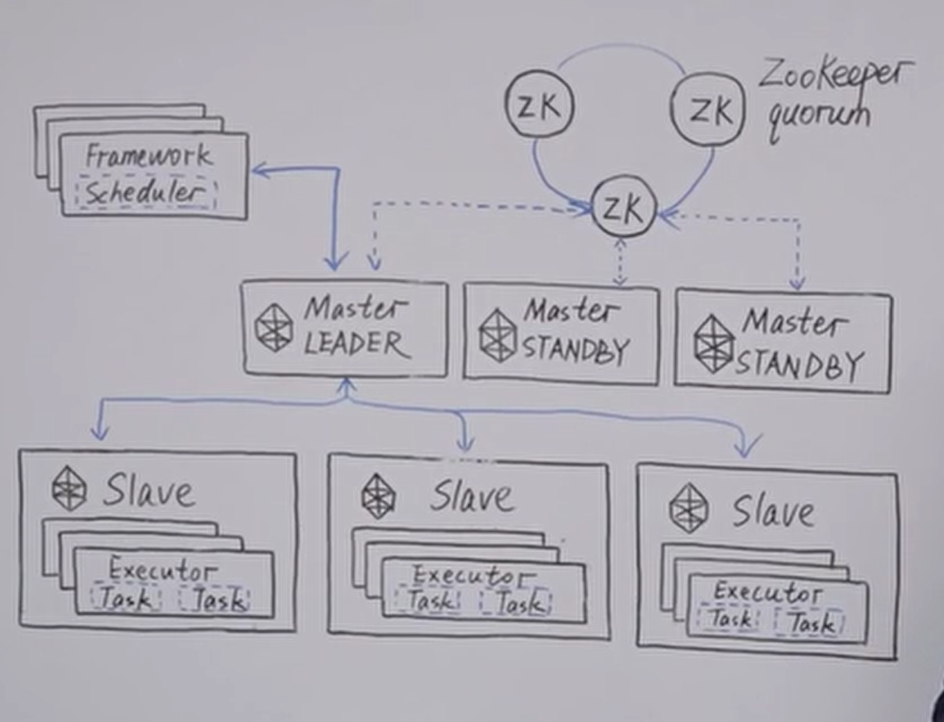 ZooKeeper
quorum
ZK
ZK
ZK
Framework
Scheduler
Master
LEADER
Master
STANDBY
Master
STANDBY
Slave
Executor
Task Task
Slave
Executor
Task Task
Slave
Executor
Task Task